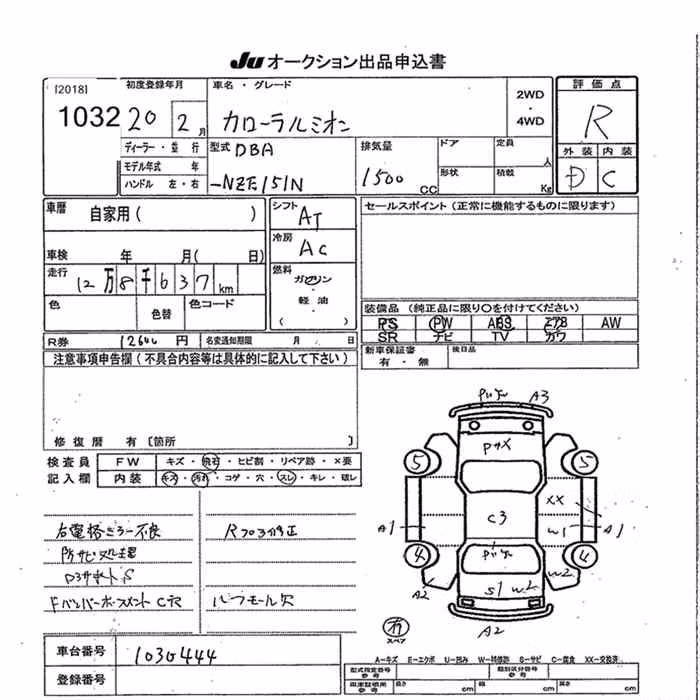 Ju オークション出品申込書
[2018]
1032
初度登録年月
20 2月
車名・グレード
カローラルミオン
2WD
・
4WD
評価点
R
外装 内装
D C
ディーラー・並行
モデル年式 年
ハンドル 左・右
型式 DBA
-NZE151N
排気量
1500 CC
ドア
定員 人
形状
積載 Kg
車歴 自家用( )
車検 年 月( 日)
走行 12万8千637km
色
色替
色コード
シフト AT
冷房 AC
燃料
ガソリン
・
軽油
( )
セールスポイント(正常に機能するものに限ります)
装備品 (純正品に限り○を付けてください)
PS PW ABS エアB AW
SR ナビ TV カワ
新車保証書
有・無
後日品
R券 12640円
名変通知期限 月 日
注意事項申告欄(不具合内容等は具体的に記入して下さい)
修復歴 有〔箇所 〕
検査員
記入欄
FW キズ・飛石・ヒビ割・リペア跡・×要
内装 キズ・汚れ・コゲ・穴・スレ・キレ・破レ
右電格ミラー不良
防サビ処理
Rフロア修正
ルーフモール欠
車台番号 1030444
登録番号
A3
PサX
5
5
XX
A1
C3
W1
A1
4
4
A2
S1 W2
W2
A2
有
スペア
A-キズ E-エクボ U-凹み W-補修跡 S-サビ C-腐食 XX-交換済
型式指定番号
参考
類別区分番号
参考
長さ cm
幅 cm
高さ cm